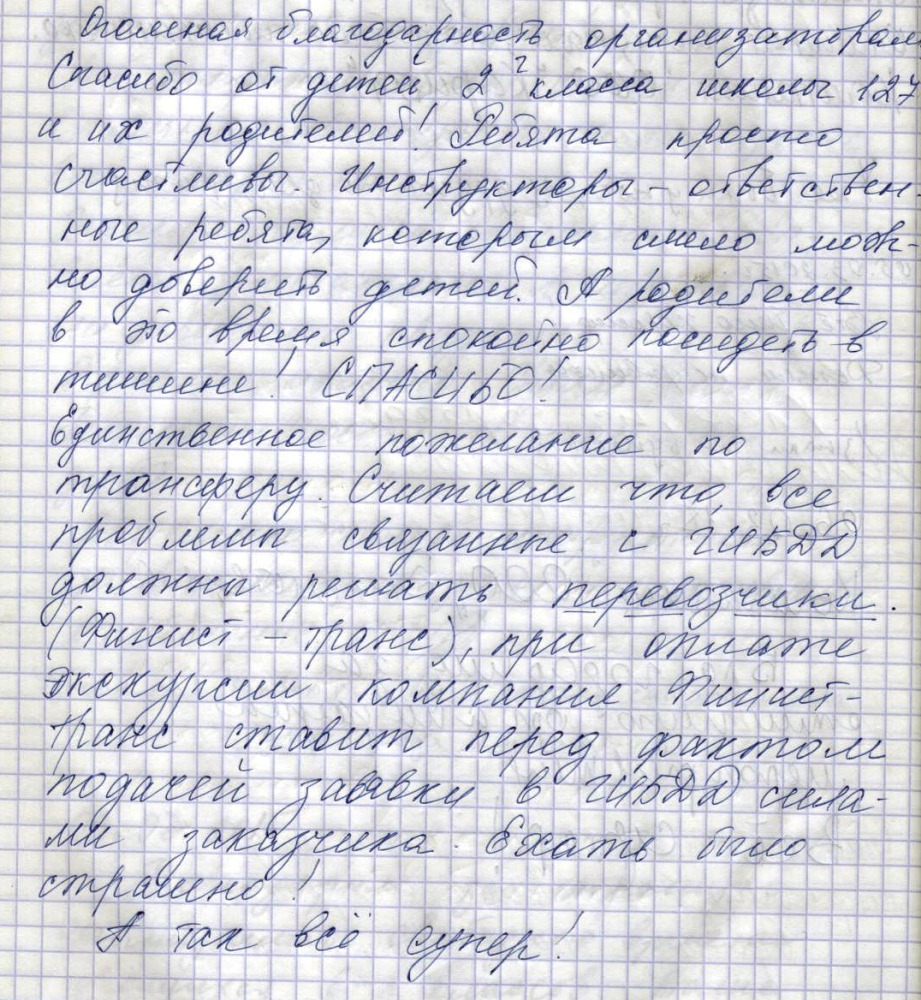 Огомная благодарность организаторам
Спасибо от детей 2 г класса школы 127
и их родителей! Ребята просто
счастливы. Инструкторы – ответствен
ные ребята, которым смело мож-
но доверить детей. А родители
в это время спокойно посидеть в
тишине! СПАСИБО!
Единственное пожелание по
трансферу. Считаем что, все
проблемы связанные с ГИБДД
должны решать перевозчики.
(Финист – транс), при оплате
экскурсии компания Финист-
транс ставит перед фактом
подачей заявки в ГИБДД сила-
ми заказчика. Ехать было
страшно!
А так всё супер!